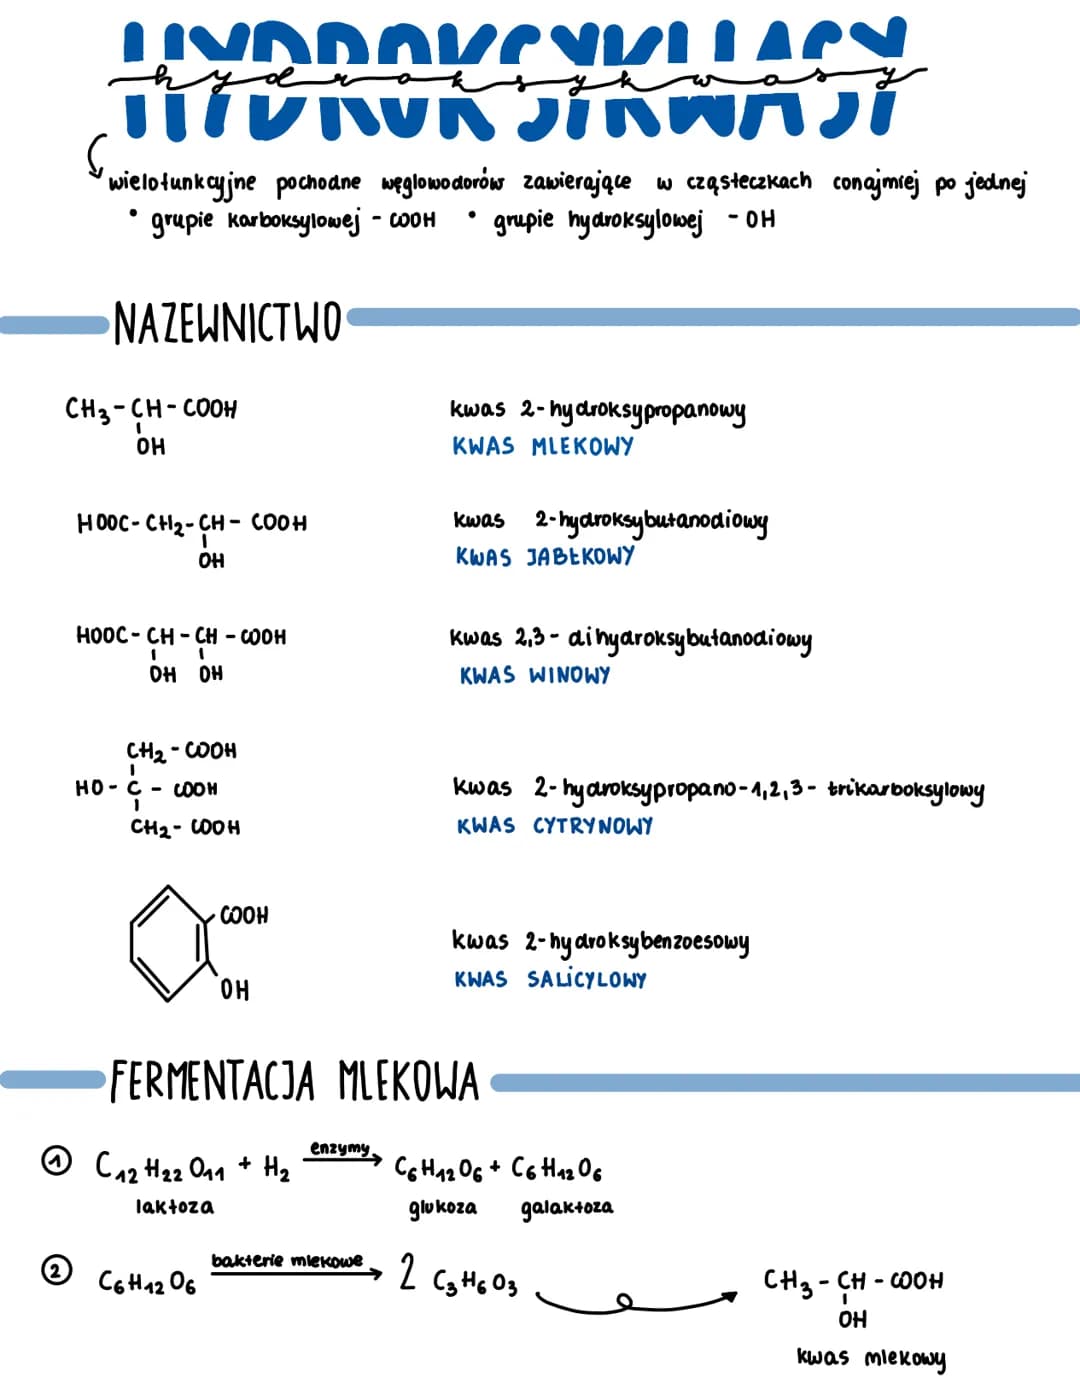 HYDROKSYKWASY
hydroksykwasy
wielofunkcyjne pochodne węglowodorów zawierające w cząsteczkach conajmiej po jednej
• grupie karboksylowej - COOH • grupie hydroksylowej - OH
NAZEWNICTWO
CH3 - CH - COOH kwas 2-hydroksypropanowy
OH KWAS MLEKOWY
HOOC - CH2 - CH - COOH kwas 2-hydroksybutanodiowy
OH KWAS JABŁKOWY
HOOC - CH - CH - COOH kwas 2,3 - dihydroksybutanodiowy
OH OH KWAS WINOWY
CH2 - COOH
HO - C - COOH kwas 2-hydroksypropano-1,2,3- trikarboksylowy
CH2 - COOH KWAS CYTRYNOWY
COOH
kwas 2-hydroksybenzoesowy
OH KWAS SALICYLOWY
FERMENTACJA MLEKOWA
① C12H22O11 + H2 enzymy → C6H12O6 + C6H12O6
laktoza glukoza galaktoza
② C6H12O6 bakterie mlekowe → 2 C3H6O3 → CH3 - CH - COOH
OH
kwas mlekowy